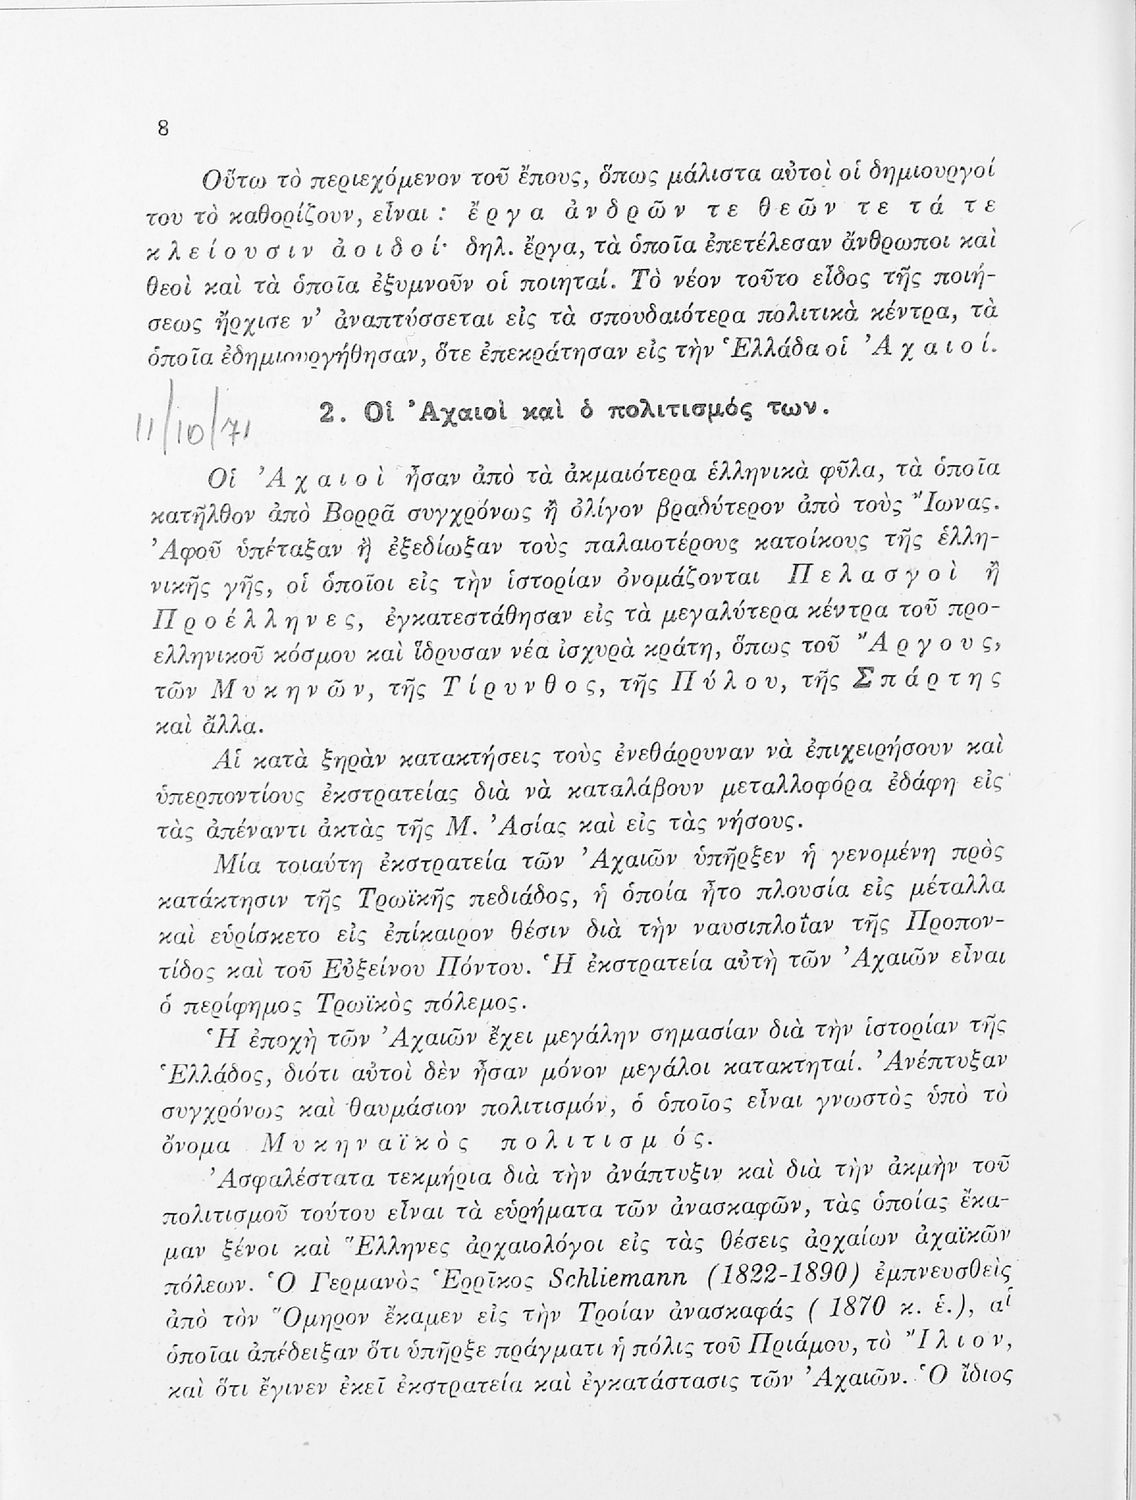 8
Οὕτω τὸ περιεχόμενον τοῦ ἔπους, ὅπως μάλιστα αὐτοὶ οἱ δημιουργοί
του τὸ καθορίζουν, εἶναι : ἔργα ἀνδρῶν τε θεῶν τε τά τε
κλείουσιν ἀοιδοί· δηλ. ἔργα, τὰ ὁποῖα ἐπετέλεσαν ἄνθρωποι καὶ
θεοὶ καὶ τὰ ὁποῖα ἐξυμνοῦν οἱ ποιηταί. Τὸ νέον τοῦτο εἶδος τῆς ποιή-
σεως ἤρχισε ν' ἀναπτύσσεται εἰς τὰ σπουδαιότερα πολιτικὰ κέντρα, τὰ
ὁποῖα ἐδημιουργήθησαν, ὅτε ἐπεκράτησαν εἰς τὴν Ἑλλάδα οἱ Ἀχαιοί.
11/10/71
2. Οἱ Ἀχαιοὶ καὶ ὁ πολιτισμός των.
Οἱ Ἀχαιοὶ ἦσαν ἀπὸ τὰ ἀκμαιότερα ἑλληνικὰ φῦλα, τὰ ὁποῖα
κατῆλθον ἀπὸ Βορρᾶ συγχρόνως ἢ ὀλίγον βραδύτερον ἀπὸ τοὺς Ἴωνας.
Ἀφοῦ ὑπέταξαν ἢ ἐξεδίωξαν τοὺς παλαιοτέρους κατοίκους τῆς ἑλλη-
νικῆς γῆς, οἱ ὁποῖοι εἰς τὴν ἱστορίαν ὀνομάζονται Πελασγοὶ ἢ
Προέλληνες, ἐγκατεστάθησαν εἰς τὰ μεγαλύτερα κέντρα τοῦ προ-
ελληνικοῦ κόσμου καὶ ἵδρυσαν νέα ἰσχυρὰ κράτη, ὅπως τοῦ Ἄργους,
τῶν Μυκηνῶν, τῆς Τίρυνθος, τῆς Πύλου, τῆς Σπάρτης
καὶ ἄλλα.
Αἱ κατὰ ξηρὰν κατακτήσεις τοὺς ἐνεθάρρυναν νὰ ἐπιχειρήσουν καὶ
ὑπερποντίους ἐκστρατείας διὰ νὰ καταλάβουν μεταλλοφόρα ἐδάφη εἰς
τὰς ἀπέναντι ἀκτὰς τῆς Μ. Ἀσίας καὶ εἰς τὰς νήσους.
Μία τοιαύτη ἐκστρατεία τῶν Ἀχαιῶν ὑπῆρξεν ἡ γενομένη πρὸς
κατάκτησιν τῆς Τρωϊκῆς πεδιάδος, ἡ ὁποία ἦτο πλουσία εἰς μέταλλα
καὶ εὑρίσκετο εἰς ἐπίκαιρον θέσιν διὰ τὴν ναυσιπλοΐαν τῆς Προπον-
τίδος καὶ τοῦ Εὐξείνου Πόντου. Ἡ ἐκστρατεία αὐτὴ τῶν Ἀχαιῶν εἶναι
ὁ περίφημος Τρωϊκὸς πόλεμος.
Ἡ ἐποχὴ τῶν Ἀχαιῶν ἔχει μεγάλην σημασίαν διὰ τὴν ἱστορίαν τῆς
Ἑλλάδος, διότι αὐτοὶ δὲν ἦσαν μόνον μεγάλοι κατακτηταί. Ἀνέπτυξαν
συγχρόνως καὶ θαυμάσιον πολιτισμόν, ὁ ὁποῖος εἶναι γνωστὸς ὑπὸ τὸ
ὄνομα Μυκηναϊκὸς πολιτισμός.
Ἀσφαλέστατα τεκμήρια διὰ τὴν ἀνάπτυξιν καὶ διὰ τὴν ἀκμὴν τοῦ
πολιτισμοῦ τούτου εἶναι τὰ εὑρήματα τῶν ἀνασκαφῶν, τὰς ὁποίας ἔκα-
μαν ξένοι καὶ Ἕλληνες ἀρχαιολόγοι εἰς τὰς θέσεις ἀρχαίων ἀχαϊκῶν
πόλεων. Ὁ Γερμανὸς Ἑρρῖκος Schliemann (1822-1890) ἐμπνευσθεὶς
ἀπὸ τὸν Ὅμηρον ἔκαμεν εἰς τὴν Τροίαν ἀνασκαφάς ( 1870 κ. ἑ.), αἱ
ὁποῖαι ἀπέδειξαν ὅτι ὑπῆρξε πράγματι ἡ πόλις τοῦ Πριάμου, τὸ Ἴλιον,
καὶ ὅτι ἔγινεν ἐκεῖ ἐκστρατεία καὶ ἐγκατάστασις τῶν Ἀχαιῶν. Ὁ ἴδιος